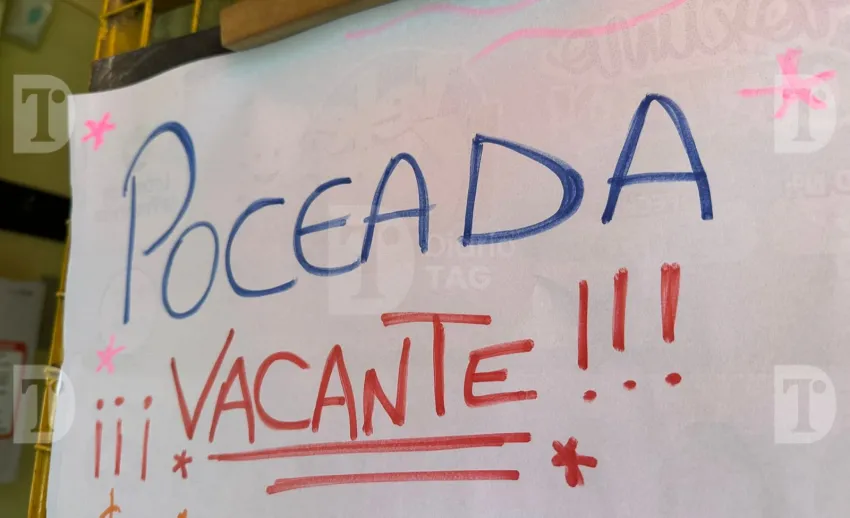 POCEADA
¡¡¡VACANTE!!!
TAG